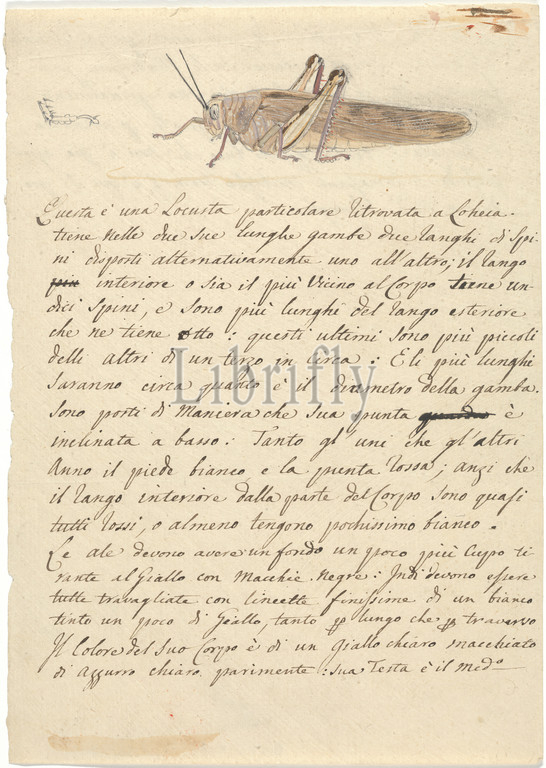 Questa è una Locusta particolare ritrovata a Loheia.
tiene nelle due sue lunghe gambe due ranghi di Spi
ni disposti alternativamente uno all'altro; il rango
più interiore o sia il più vicino al Corpo tiene un-
dici Spini, e sono più lunghi del rango esteriore
che ne tiene otto: questi ultimi sono più piccoli
delli altri di un terzo in circa: E li più lunghi
saranno circa quanto è il diametro della gamba.
Sono posti di Maniera che sua punta è
inclinata a basso: Tanto gl'uni che gl'altri
Anno il piede bianco e la punta rossa; anzi che
il rango interiore dalla parte del Corpo sono quasi
tutti rossi, o almeno tengono pochissimo bianco.
Le ale devono avere un fondo un poco più Cupo ti
rante al Giallo con Macchie Negre: Indi devono essere
tutte travagliate con lineette finissime di un bianco
tinto un poco di Giallo, tanto lungo che traverso
Il Colore del suo Corpo è di un giallo chiaro macchiato
di azzurro chiaro parimente: sua Testa è il med.o
Librifly